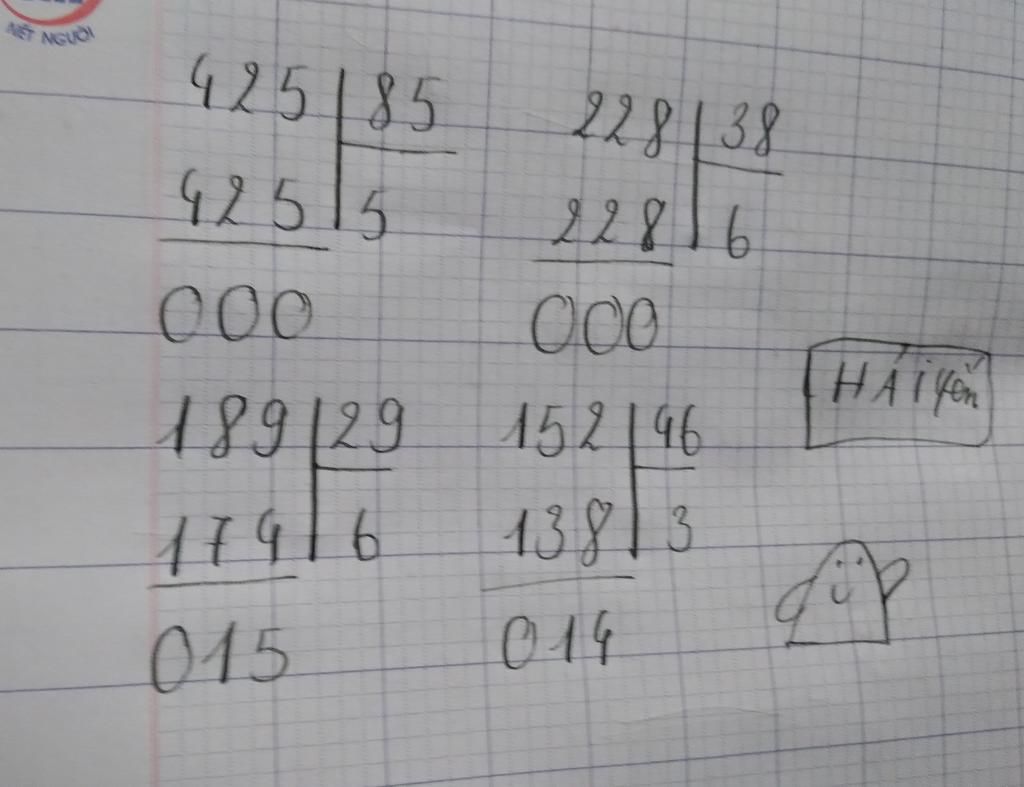 NÉT NGƯỜI
425 85
425 5
000
228 38
228 6
000
189 29
174 6
015
152 46
138 3
014
HẢI Yến